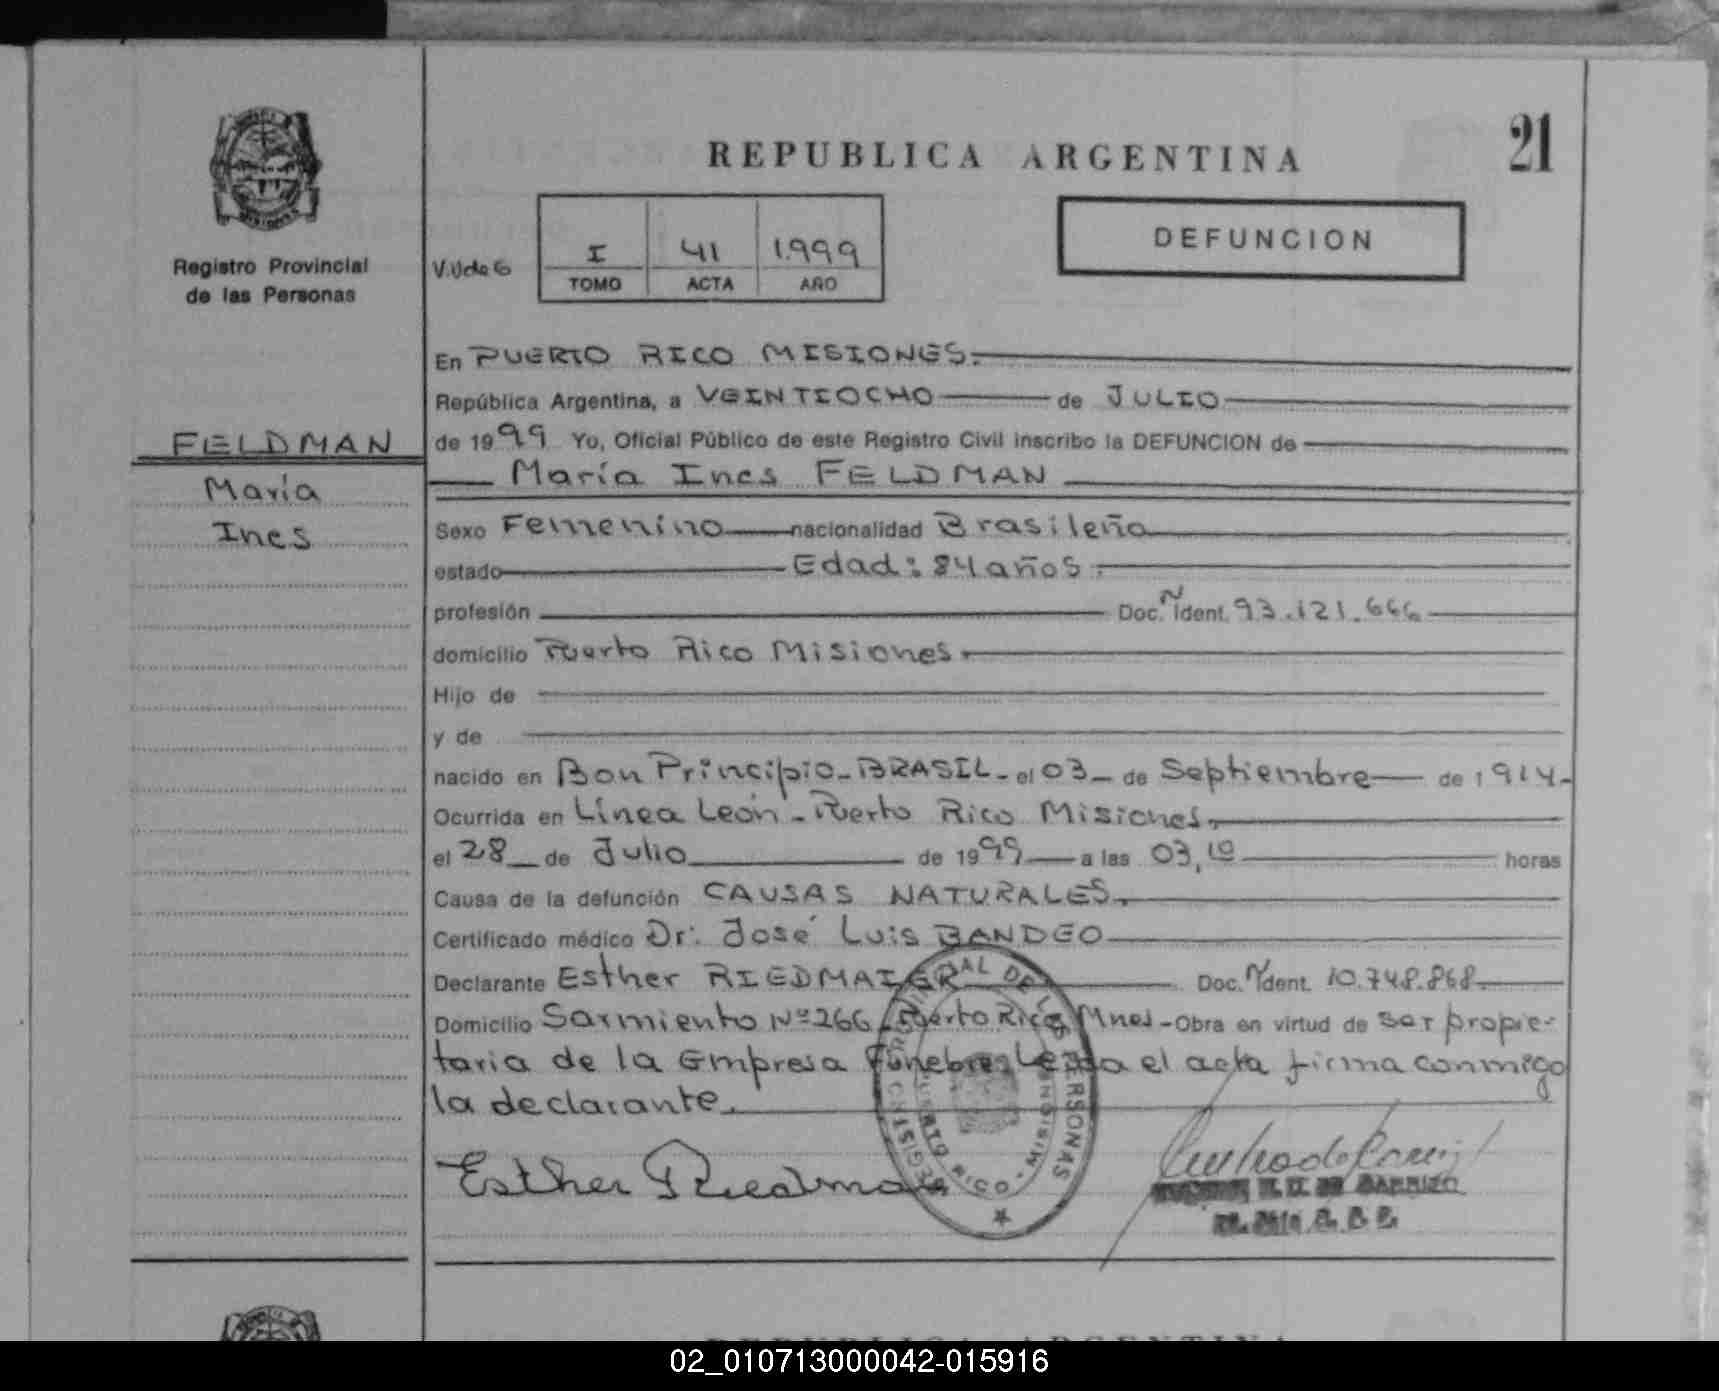 REPUBLICA ARGENTINA
21
Registro Provincial
de las Personas
V.Ude6
I 41 1.999
TOMO ACTA AÑO
DEFUNCION
FELDMAN
María
Ines
En PUERTO RICO MISIONES.
República Argentina, a VEINTIOCHO de JULIO
de 1999 Yo, Oficial Público de este Registro Civil inscribo la DEFUNCION de
María Ines FELDMAN
Sexo Femenino nacionalidad Brasileña
estado Edad: 84 años.
profesión Doc. N Ident. 93.121.666
domicilio Puerto Rico Misiones.
Hijo de
y de
nacido en Bon Principio-BRASIL- el 03 de Septiembre de 1914-
Ocurrida en Línea León - Puerto Rico Misiones.
el 28 de Julio de 1999 a las 03,10 horas
Causa de la defunción CAUSAS NATURALES.
Certificado médico Dr: José Luis BANDEO
Declarante Esther RIEDMAIER Doc. N Ident. 10.748.868
Domicilio Sarmiento Nº 266 Puerto Rico Mnes - Obra en virtud de ser propie-
taria de la Empresa Fúnebre. Leída el acta firma conmigo
la declarante.
REGISTRO PROVINCIAL DE LAS PERSONAS
PUERTO RICO - MISIONES
Esther
REPUBLICA ARGENTINA
02_010713000042-015916